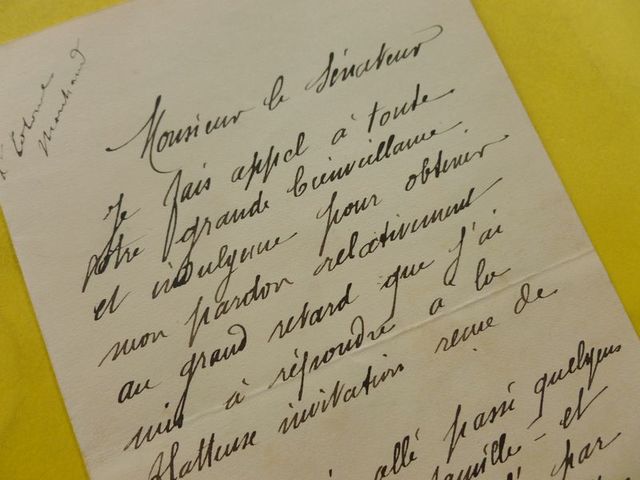 Colonel
Marchand
Monsieur le Sénateur
Je fais appel à toute
votre grande bienveillance
et indulgence pour obtenir
mon pardon relativement
au grand retard que j'ai
mis à répondre à la
flatteuse invitation reçue de
allé passé quelques
famille - et
par